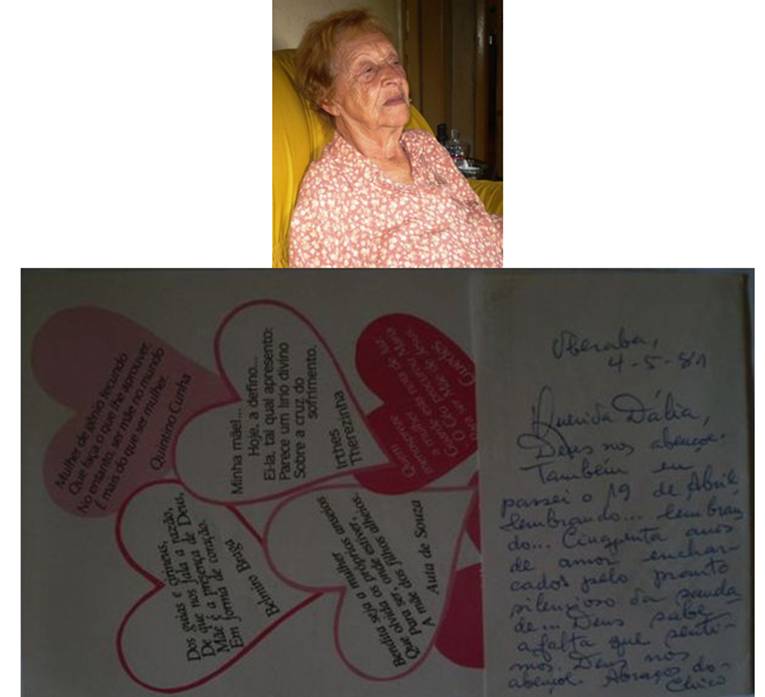 Mulher de gênio fecundo
Que faça o que lhe aprouver,
No entanto, ser mãe no mundo
É mais do que ser mulher.
Quintino Cunha
Minha mãe!...
Hoje, a defino...
Ei-la, tal qual apresento:
Parece um lírio divino
Sobre a cruz do
sofrimento.
Irthes
Therezinha
Que nos fala a razão,
De que nos presença de Deus,
Mãe é a presença de Deus,
Em forma de coração.
Belmiro Braga
Bendita seja a mulher
Que olvida os próprios anseios
Para ser, onde estiver,
A mãe dos filhos alheios.
Auta de Souza
Uberaba,
4-5-81
Querida Dália,
Deus nos abençoe.
Também eu
passei o 19 de Abril
lembrando... lembran
do... Cinquenta anos
de amor enchar-
cados pelo pranto
silencioso da sauda
de... Deus sabe
a falta que senti-
mos. Deus nos
abençoe. Abraços do
Chico